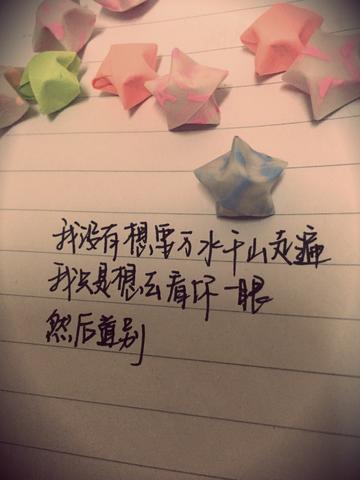 我没有想要万水千山走遍
我只是想去看你一眼
然后道别